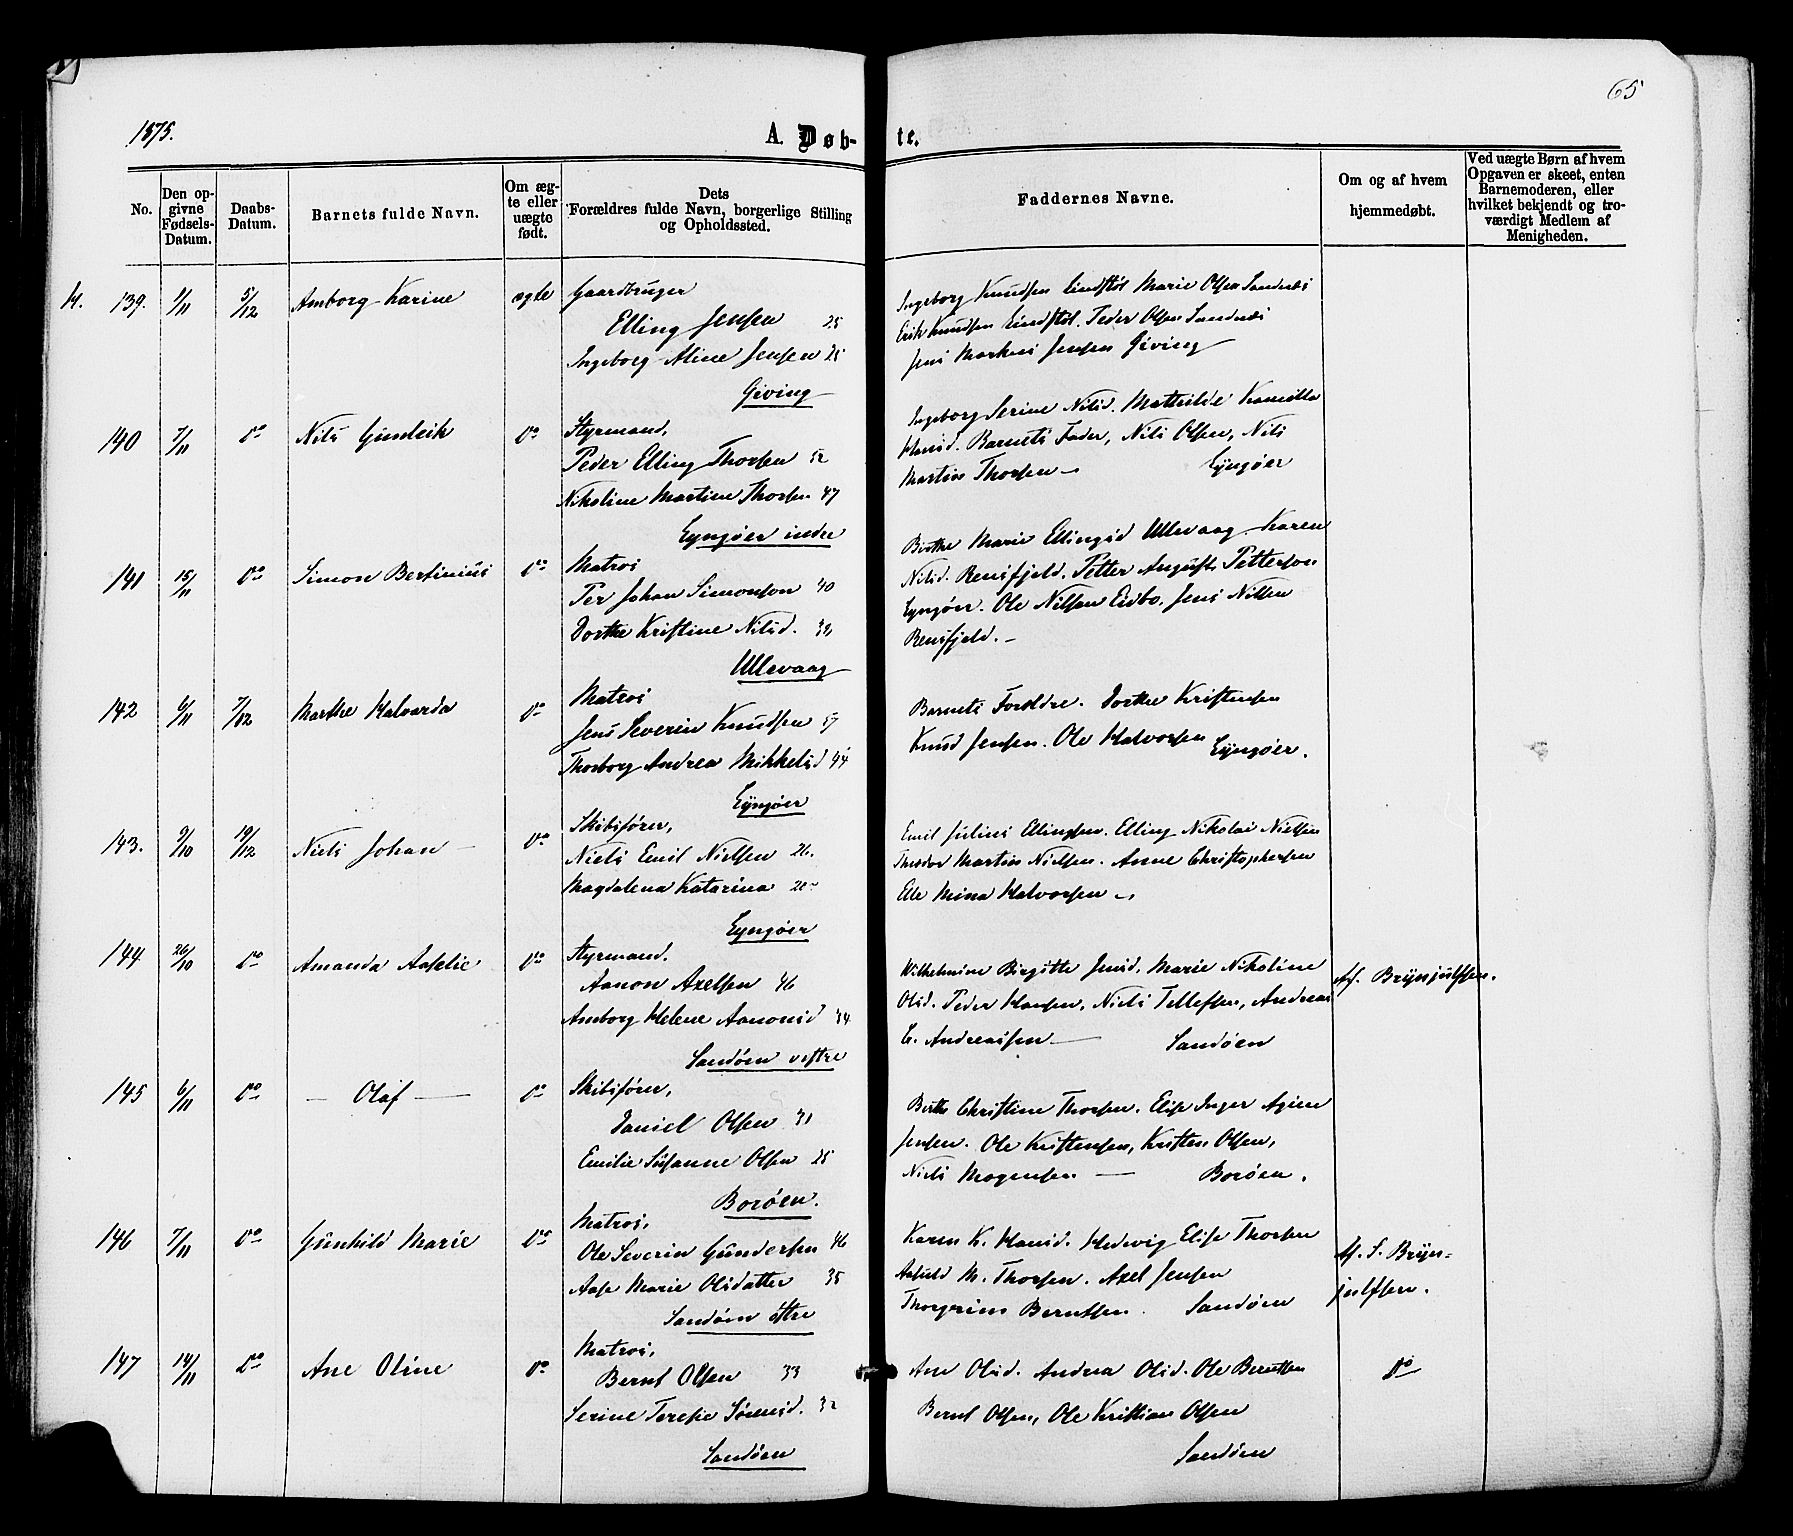 65
1875.
A. Døb-
te.
No.
Den op-
givne
Fødsels-
Datum.
Daabs-
Datum.
Barnets fulde Navn.
Om æg-
te eller
uægte
født.
Dets
Forældres fulde Navn, borgerlige Stilling
og Opholdssted.
Faddernes Navne.
Om og af hvem
hjemmedøbt.
Ved uægte Børn af hvem
Opgaven er skeet, enten
Barnemoderen, eller
hvilket bekjendt og tro-
værdigt Medlem af
Menigheden.
139. 1/11 5/12 Amborg Karine ægte Gaardbruger
Elling Jensen 25
Ingeborg Aline Jensen 25
Giving
Ingeborg Knudsen Lindstøl Marie Olsen Sandnæs
Erik Knudsen Lindstøl. Peder Olsen Sandnæs
Jens Markus Jensen Giving
140 7/11 Do Nils Gundvik Do Styrmand,
Peder Elling Thorsen 52
Nikoline Martine Thorsen 47
Lyngøer indre
Ingeborg Serine Nilsd. Mathilde Kamilla
Hansd. Barnets Fader, Nils Olsen, Nils
Martin Thorsen — Lyngøer
141 15/11 Do Simon Bertinius Do Matros
Per Johan Simonson 40
Dorthe Kristine Nilsd.
Ullevaag
Birthe Marie Ellingsd Ullevaag Karen
Nilsd. Rensfjeld. Petter August Petterson
Lyngøer. Ole Nilsen Eidbo, Jens Nilsen
Rensfjeld. —
142 6/11 7/12 Marthe Halvarda Do Matros
Jens Severin Knudsen 57
Thorborg Andrea Mikkelsd 44
Lyngøer
Barnets Foreldre. Dorthe Kristensen
Knud Jensen. Ole Halvorsen Lyngøer.
143. 9/10 19/12 Niels Johan — Do Skibsfører,
Niels Emil Nielsen 26.
Magdalena Katarina 20
Lyngøer
Emil Julius Ellingsen. Elling Nikolai Nielsen
Theodor Martin Nielsen. Anne Christophersen
Ele Mina Halvorsen
144 26/10 Do Amanda Aaselie Do Styrmand.
Aanon Axelsen 46
Amborg Helene Aanonsd 34
Sandøen vestre
Wilhelmine Birgitte Jensd. Marie Nikoline
Olsd. Peder Hansen, Niels Tellefsen, Andreas
E. Andreassen — Sandøen
Af. Brynjulfsen.
145 6/11 Do — Olaf — Do Skibsfører,
Daniel Olsen 31
Emilie Susanne Olsen 25
Borøen.
Berthe Christine Thorsen. Elise Inger Agine
Jensen. Ole Kristensen, Kristen Olsen,
Niels Mogensen — Borøen.
146 7/11 Do Gunhild Marie Do Matros,
Ole Severin Gundersen 46
Aase Marie Olsdatter 35
Sandøen østre
Karen K. Hansd. Hedevig Elise Thorsen
Aasuld M. Thorsen. Axel Jensen
Thorgrim Berntsen. Sandøen
Af. S. Bryn=
julfsen.
147 14/11 Do Ane Oline Do Matros,
Bernt Olsen 33
Serine Terese Sørensd. 32
Sandøen
Ane Olsd. Andrea Olsd. Ole Berntsen
Bernt Olsen, Ole Kristian Olsen
Sandøen
Do